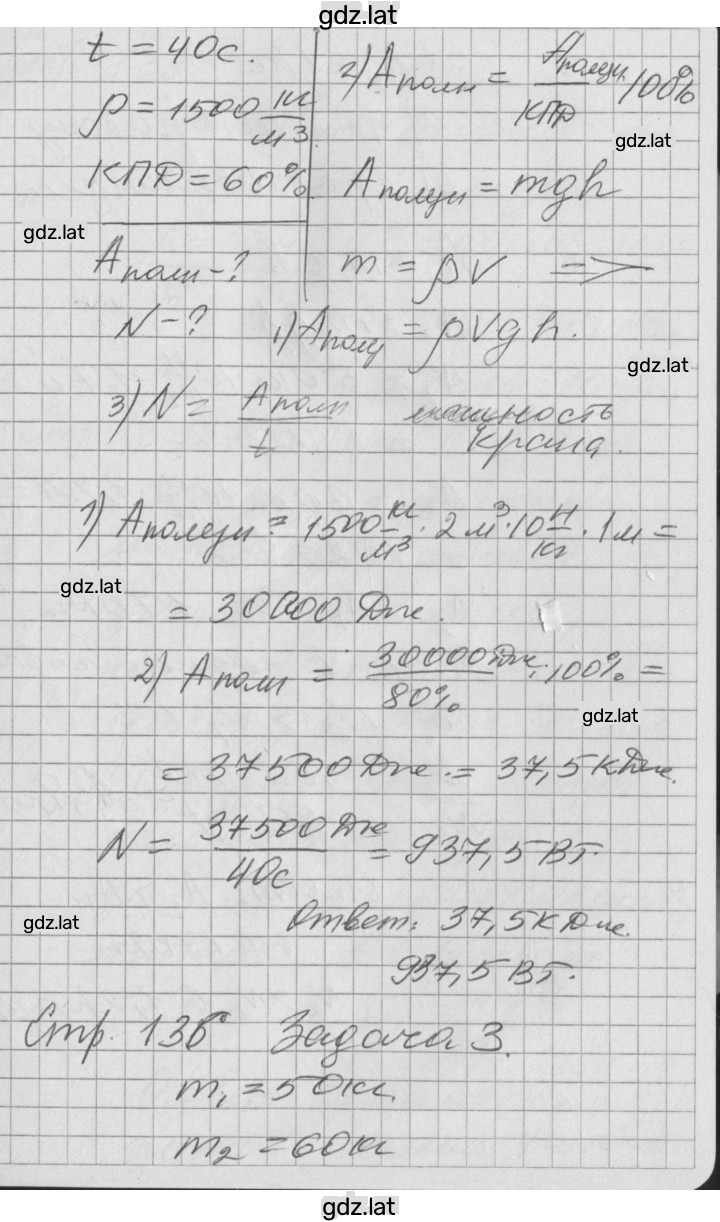 gdz.lat
t = 40с.
ρ = 1500 кг/м³
КПД = 60%
Aполн - ?
N - ?
2) Aполн = Aполезн/КПД · 100%
gdz.lat
Aполезн = mgh
gdz.lat
m = ρV =>
1) Aполу = ρVgh.
gdz.lat
3) N = Aполн/t мощность
крана.
1) Aполезн = 1500 кг/м³ · 2 м³ · 10 Н/кг · 1 м =
gdz.lat
= 30000 Дж.
2) Aполн = 30000 Дж/80% · 100% =
gdz.lat
= 37500 Дж. = 37,5 кДж.
N = 37500 Дж/40с = 937,5 Вт.
gdz.lat
Ответ: 37,5 кДж.
937,5 Вт.
Стр. 136 Задача 3.
m₁ = 50 кг
m₂ = 60 кг
gdz.lat